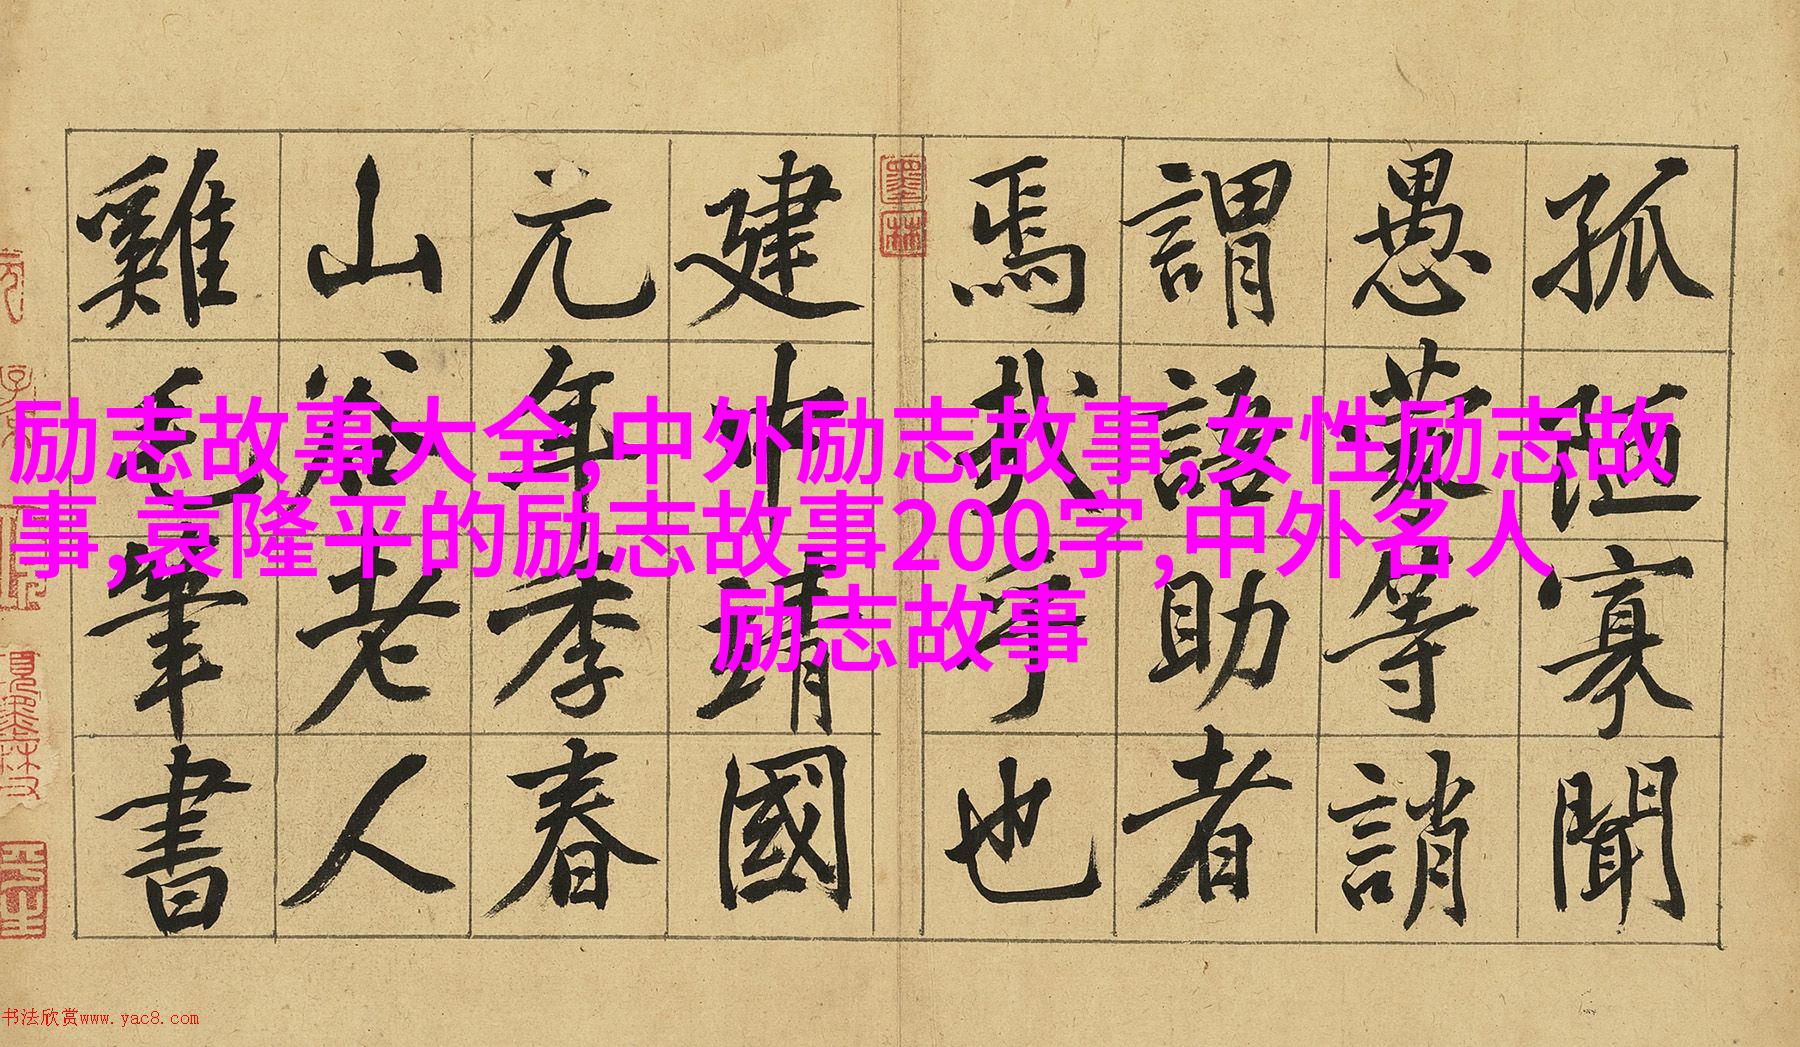 孤陋寡聞
愚蒙等誚
謂語助者
焉哉乎也
墨林
建中靖國
元年季春
山谷老人
雞毛筆書
励志故事大全,中外励志故事,女性励志故
事,袁隆平的励志故事200字,中外名人
励志故事
书法欣赏www.yac8.com